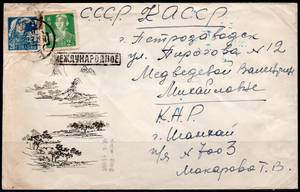 СССР КАССР
г. Петрозаводск
ул. Пирогова № 12
МЕЖДУНАРОДНОЕ
Медведевой Валентине
Михайловне
К.Н.Р.
г. Шанхай
п/я № 7003
Макарова Т. В.